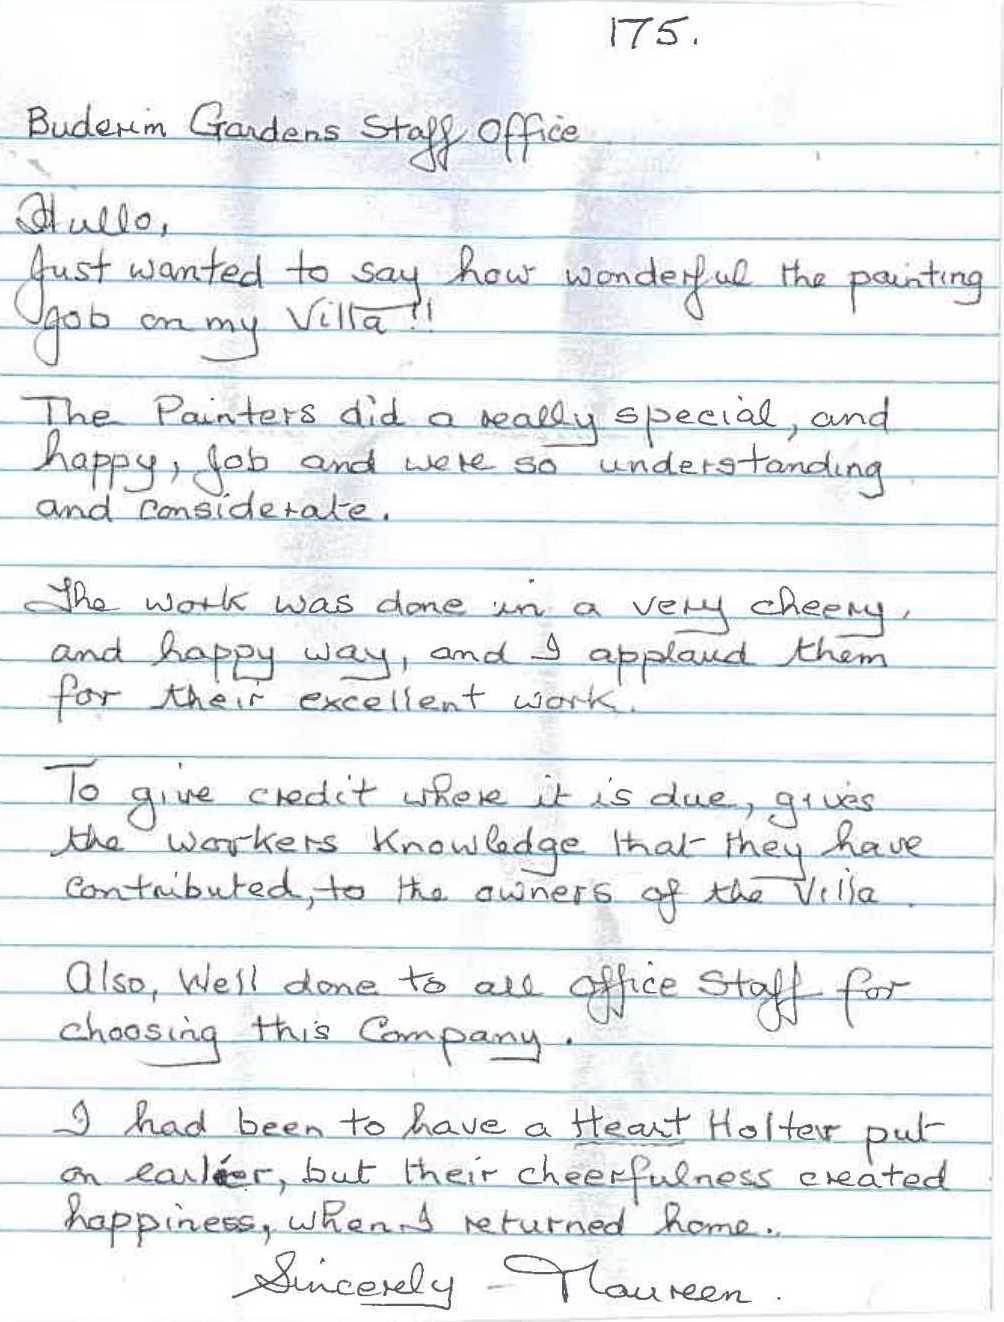 175.
Buderim Gardens Staff Office
Hullo,
Just wanted to say how wonderful the painting
job on my Villa!!
The Painters did a really special, and
happy, job and were so understanding
and considerate.
The work was done in a very cheery,
and happy way, and I applaud them
for their excellent work.
To give credit where it is due, gives
the workers knowledge that they have
contributed, to the owners of the Villa.
Also, Well done to all office Staff for
choosing this Company.
I had been to have a Heart Holter put
on earlier, but their cheerfulness created
happiness, when I returned home..
Sincerely - Maureen.